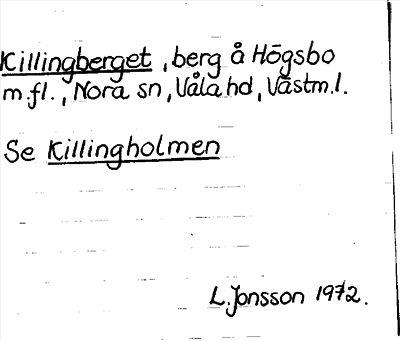 Killingberget, berg å Högsbo
m.fl., Nora sn, Våla hd, Västm.l.
Se Killingholmen
L. Jonsson 1972.